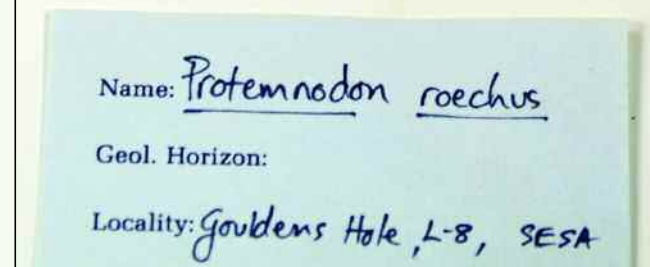 Name: Protemnodon roechus
Geol. Horizon:
Locality: Gouldens Hole, L-8, SESA